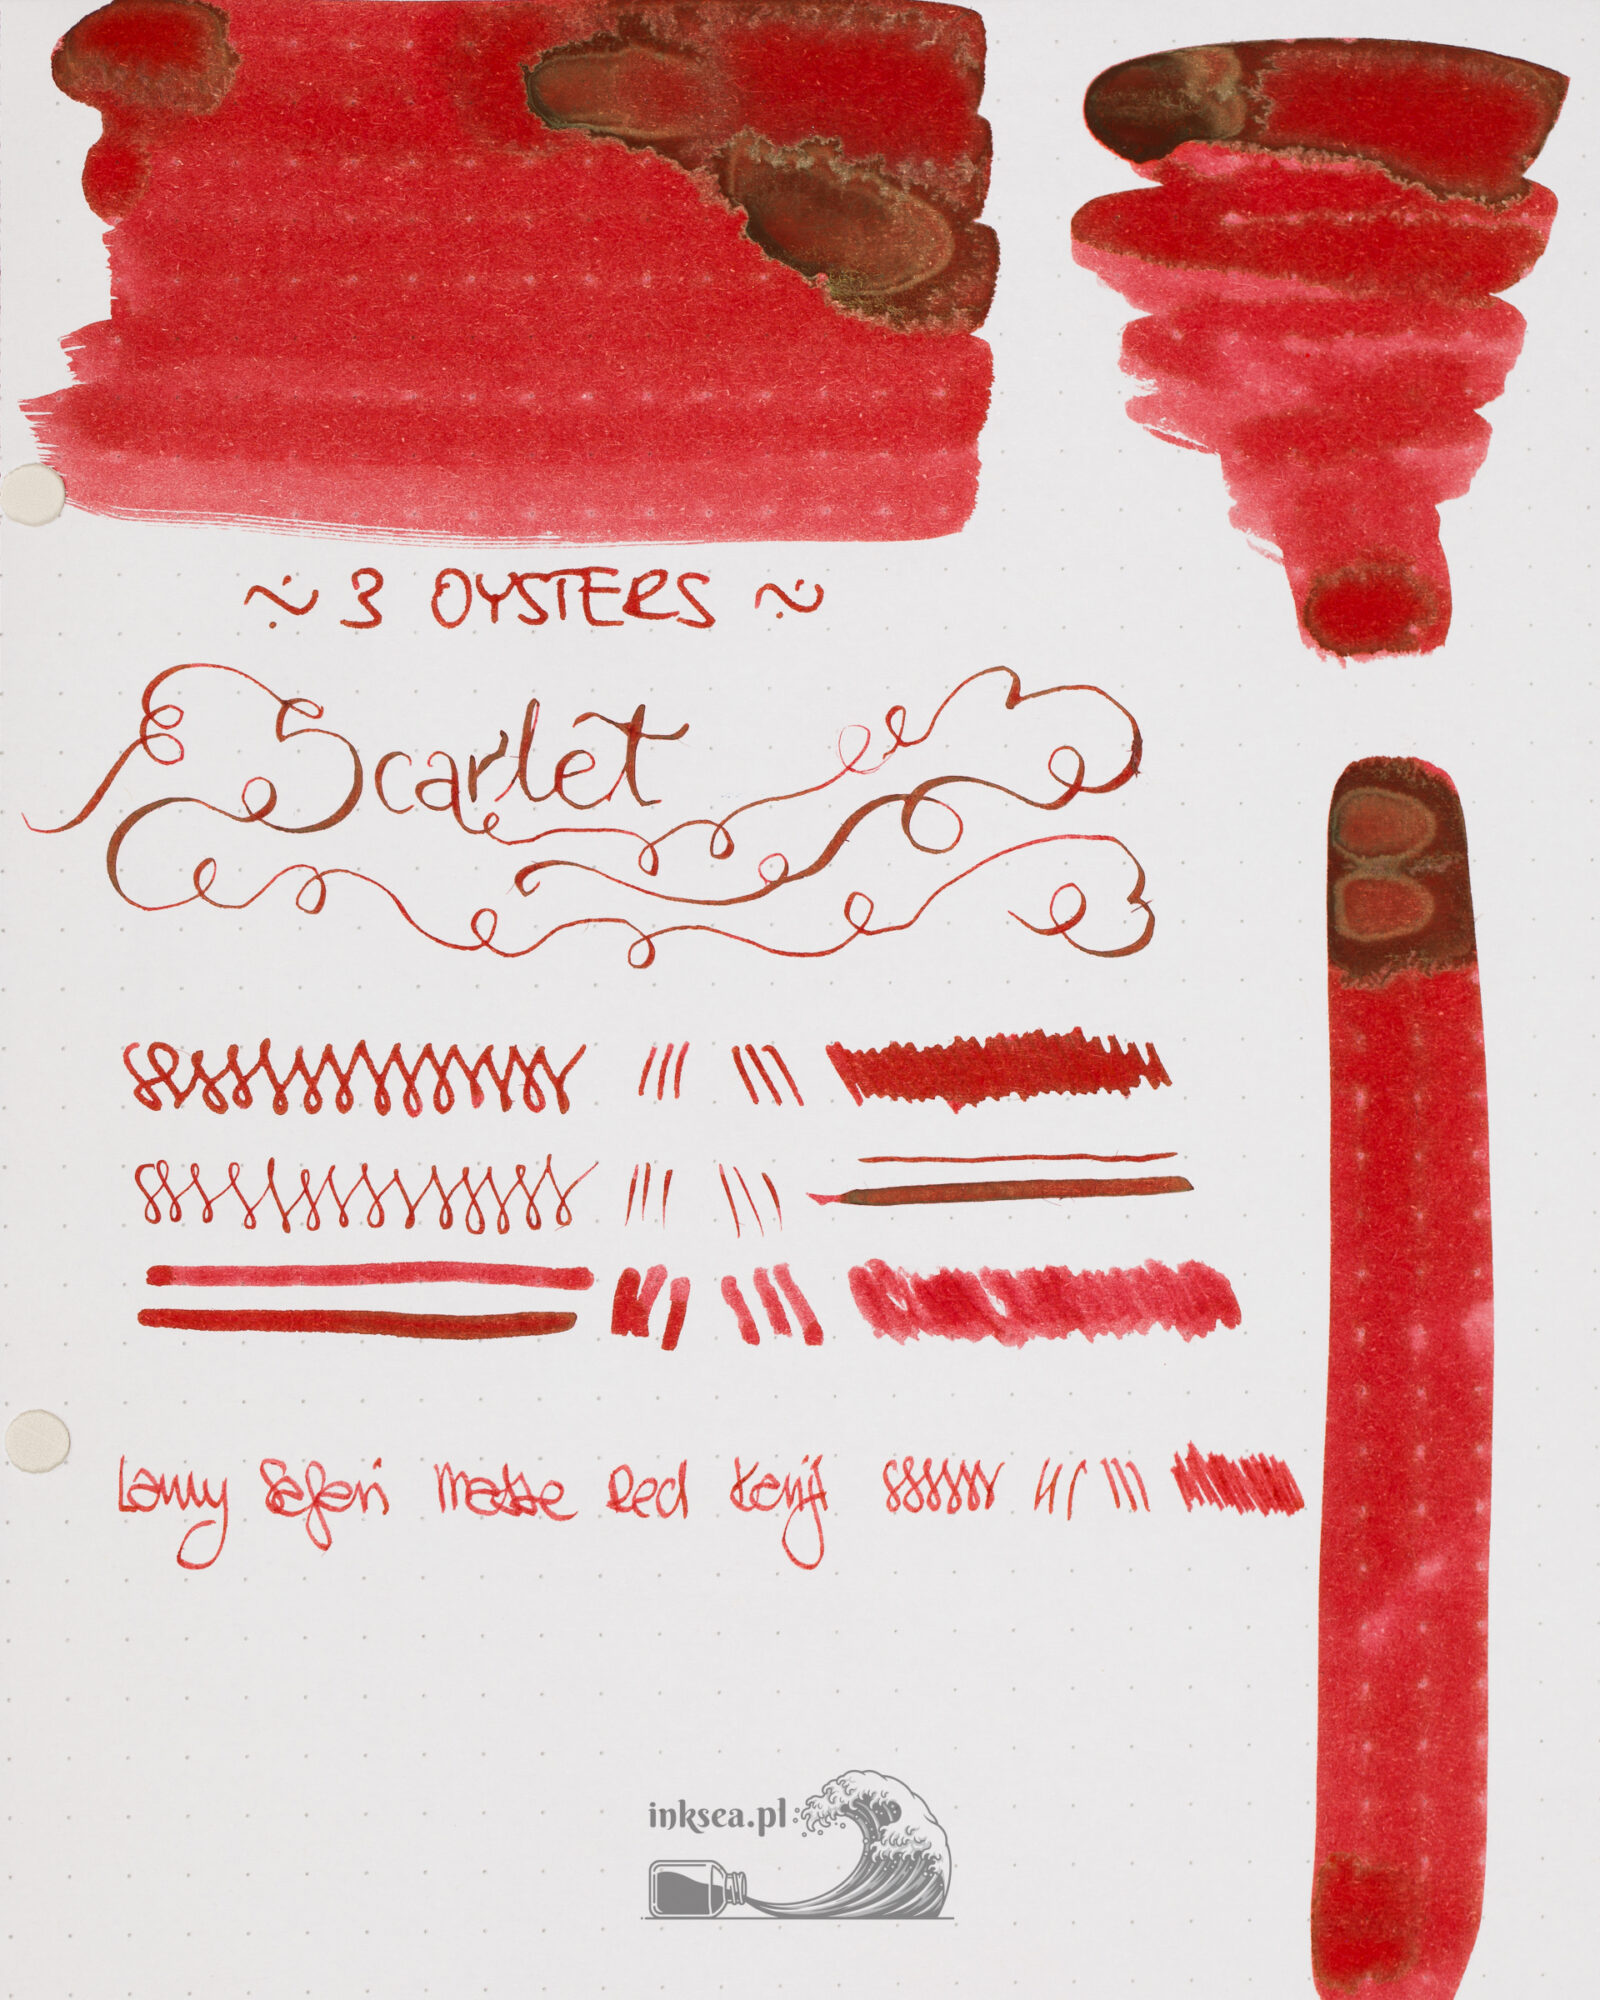 ~ 3 OYSTERS ~
Scarlet
Lamy Safari Matse Red Kenji
inksea.pl